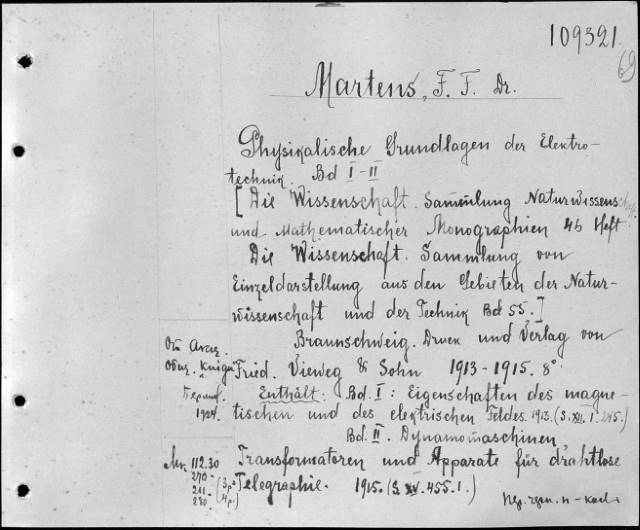 109321.
69
Martens, F. F. Dr.
Physikalische Grundlagen der Elektro-
technik. Bd I-II
[Die Wissenschaft. Sammlung Naturwissensch.
und Mathematischer Monographien 46 Heft
Die Wissenschaft. Sammlung von
Einzeldarstellung aus den Gebieten der Natur-
wissenschaft und der Technik Bd 55.]
Braunschweig. Druck und Verlag von
Fried. Vieweg & Sohn 1913-1915. 8°.
Enthält: Bd. I: Eigenschaften des magne-
tischen und des elektrischen Feldes. 1913. (S. XII. 1. 245.)
Bd. II. Dynamomaschinen,
Transformatoren und Apparate für drahtlose
Telegraphie. 1915. (S. XV. 455. 1.)
От Акад.
Книги
Берлин.
1924.
112.30
270
211
280
(3 р.
4 р.)